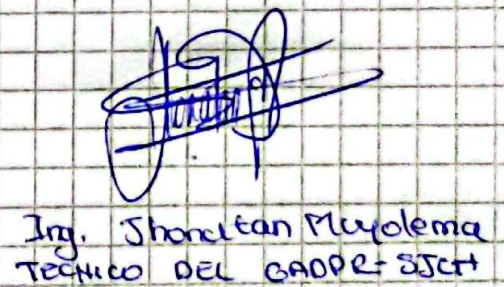 Ing. Jhonatan Muyolema
TECNICO DEL GADPR-SJCH